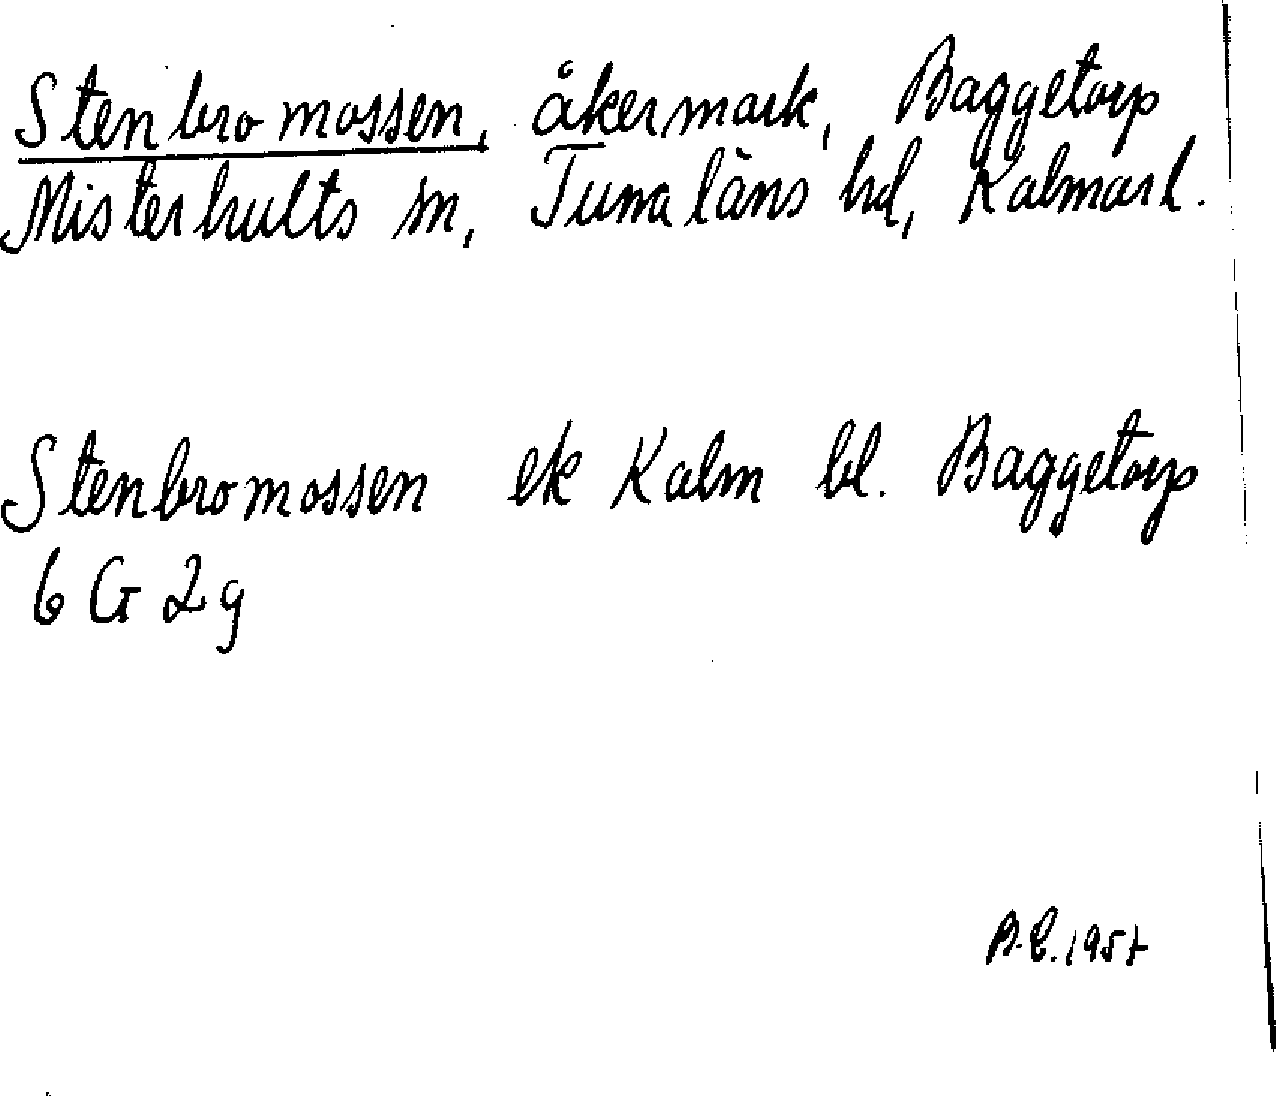 Stenbromossen, åkermark, Baggetorp
Misterhults sn, Tunaläns hd, Kalmar l.
Stenbromossen ek Kalm bl. Baggetorp
6 G 2g
B.E. 1957